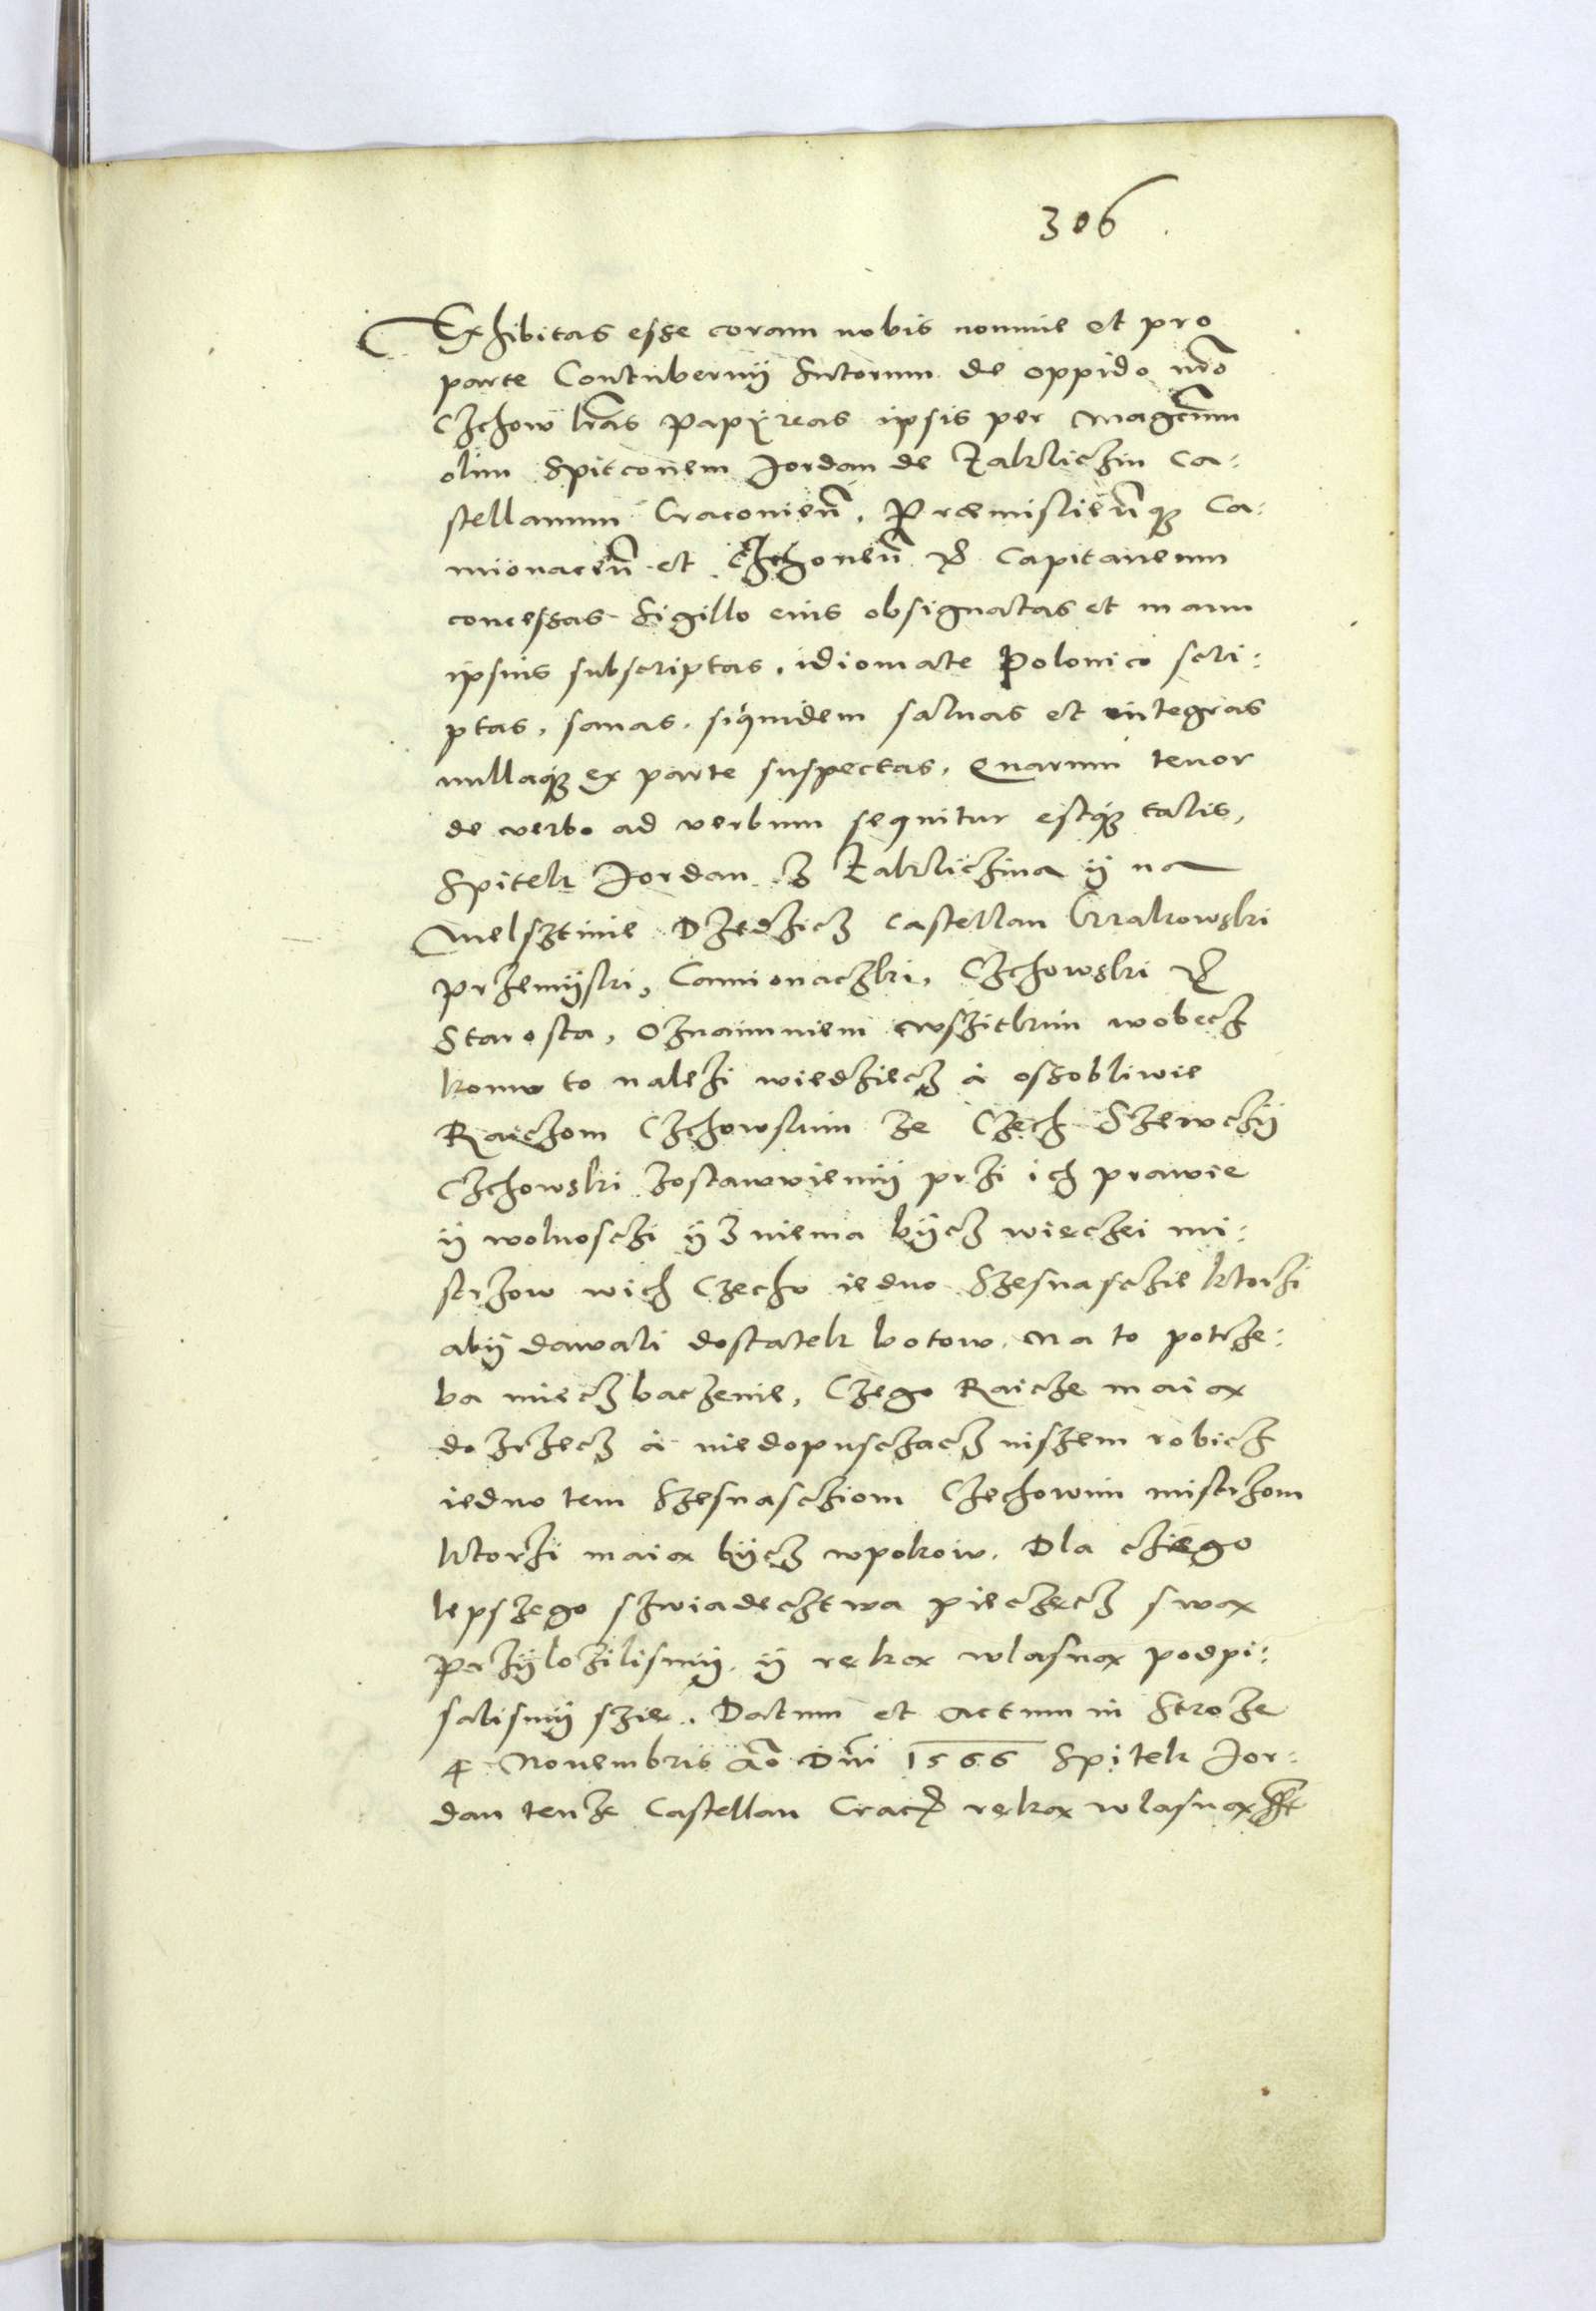 306
Exhibitas esse coram nobis nomine et pro
parte Contubernij Sutorum de oppido nr̃o
Czchow lr̃as papÿreas ipsis per Magcum̃
olim Spitconem Jordan de Zakliczin Ca:
stellanum Cracovien̄, Præmislien̄q₃ Ca:
mionacen̄ et Czchovien̄ &c Capitaneum
concessas Sigillo eius obsignatas et manu
ipsius subscriptas, idiomate Polonico scri:
ptas, sanas, siquidem saluas et integras
nullaq₃ ex parte suspectas, Quarum tenor
de verbo ad verbum sequitur estq₃ talis,
Spitek Jordan z Zakliczina ÿ na
Melsztinie Dzedzicz Castellan Krakowski
Przemÿski, Camionaczki, Czchowski &c
Starosta, Oznaimuiem wszitkim wobecz
komu to nalezi wiedziecz à ossobliwie
Raiczom Czchowskim ze Czech Szewczÿ
Czchowski zostawuiemÿ przi ich prawie
ÿ wolnosczi ÿz niema bÿcz więczei mi:
strzow wich Czechu iedno Szesnasczie ktorzi
abÿ dawali dostatek botow. Na to potrze:
ba miecz baczenie, Czego Raicze maią
dozrzecz à niedopusczacz niszem robicz
iedno tem Szesnascziom Czechowim mistrzom
ktorzi maią bÿcz wpokoiu. Dla cziego
lepszego szwiadecztwa pieczęcz swą
Przÿlozilismÿ. ÿ ręką wlasną podpi:
salismÿ szie. Datum et Actum in Stroze
4 Novembris Ao Dn̄i 1566 Spitek Jor:
dan tenze Castellan Crac&c ręką wlasną sst